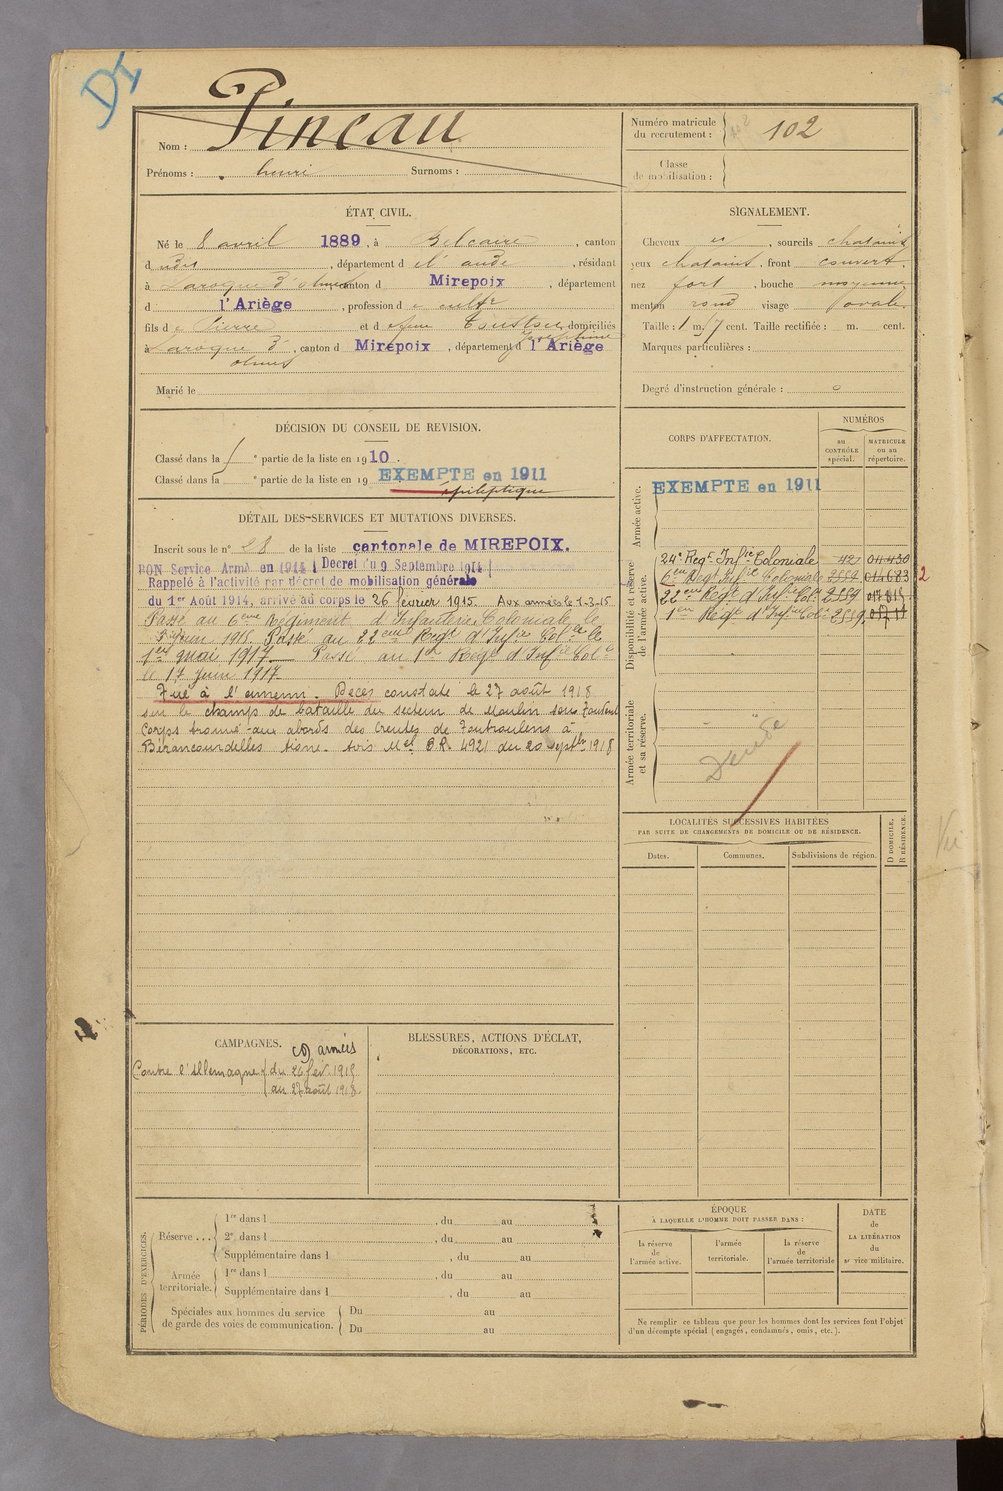 Pineau
Nom :
Prénoms : henri Surnoms :
Numéro matricule
du recrutement : 102
Classe
de mobilisation :
ÉTAT CIVIL.
Né le 8 avril 1889, à Belcaire, canton
d udit, département d e l'aude, résidant
à Laroque d'olmes, canton d Mirepoix, département
d l'Ariège, profession d e cultr
fils d e Pierre et d efeue Toustou Joséphine domiciliés
à Laroque d'olmes, canton d Mirepoix, département d l'Ariège
Marié le
SIGNALEMENT.
Cheveux et, sourcils chatains
yeux chatains, front couvert,
nez fort, bouche moyenne
menton rond visage ovale
Taille : 1 m. 7 cent. Taille rectifiée : m. cent.
Marques particulières :
Degré d'instruction générale : 0
DÉCISION DU CONSEIL DE REVISION.
Classé dans la e partie de la liste en 1910.
Classé dans la e partie de la liste en 19 EXEMPTE en 1911
épileptique
DÉTAIL DES SERVICES ET MUTATIONS DIVERSES.
Inscrit sous le n° 28 de la liste cantonale de MIREPOIX.
BON Service Armé en 1914 (Decret du 9 Septembre 1914)
Rappelé à l'activité par décret de mobilisation générale
du 1er Août 1914, arrivé au corps le 26 février 1915. Aux armées le 1-3-15
Passé au 6eme Régiment d'Infanterie Coloniale le
juin 1915 Passé au 22eme Regt d'Infie Colle le
1er mai 1917 Passé au 1er Regt d'Infie Colle
le 17 juin 1917
Tué à l'ennemi. Décès constaté le 27 août 1918
sur le champs de bataille du secteur de Moulin sous Toutvent
Corps trouvé aux abords des Creutes de Toutvoulens à
Bérancourdelles Aisne. Avis Mel B.R. 4921 du 20 septbre 1918
CORPS D'AFFECTATION.
NUMÉROS
au
CONTRÔLE
spécial.
MATRICULE
ou au
répertoire.
Armée active.
EXEMPTE en 1911
Disponibilité et réserve
de l'armée active.
24e Regt Infie Coloniale 421 011430
6eme Regt Infie Coloniale 2559 014683 2
22eme Regt d'Infie Cole 2559 017815
1er Regt d'Infie Cole 2559
Armée territoriale
et sa réserve.
LOCALITÉS SUCCESSIVES HABITÉES
PAR SUITE DE CHANGEMENTS DE DOMICILE OU DE RÉSIDENCE.
Dates.
Communes.
Subdivisions de région.
D DOMICILE,
R RÉSIDENCE.
CAMPAGNES.
armées
Contre l'Allemagne du 26 fév. 1915
au 27 août 1918
BLESSURES, ACTIONS D'ÉCLAT,
DÉCORATIONS, ETC.
PÉRIODES D'EXERCICES.
Réserve ...
1re dans l , du au
2e dans l , du au
Supplémentaire dans l , du au
Armée
territoriale.
1re dans l , du au
Supplémentaire dans l , du au
Spéciales aux hommes du service
de garde des voies de communication.
Du au
Du au
ÉPOQUE
À LAQUELLE L'HOMME DOIT PASSER DANS :
la réserve
de
l'armée active.
l'armée
territoriale.
la réserve
de
l'armée territoriale
DATE
de
LA LIBÉRATION
du
service militaire.
Ne remplir ce tableau que pour les hommes dont les services font l'objet
d'un décompte spécial (engagés, condamnés, omis, etc.).